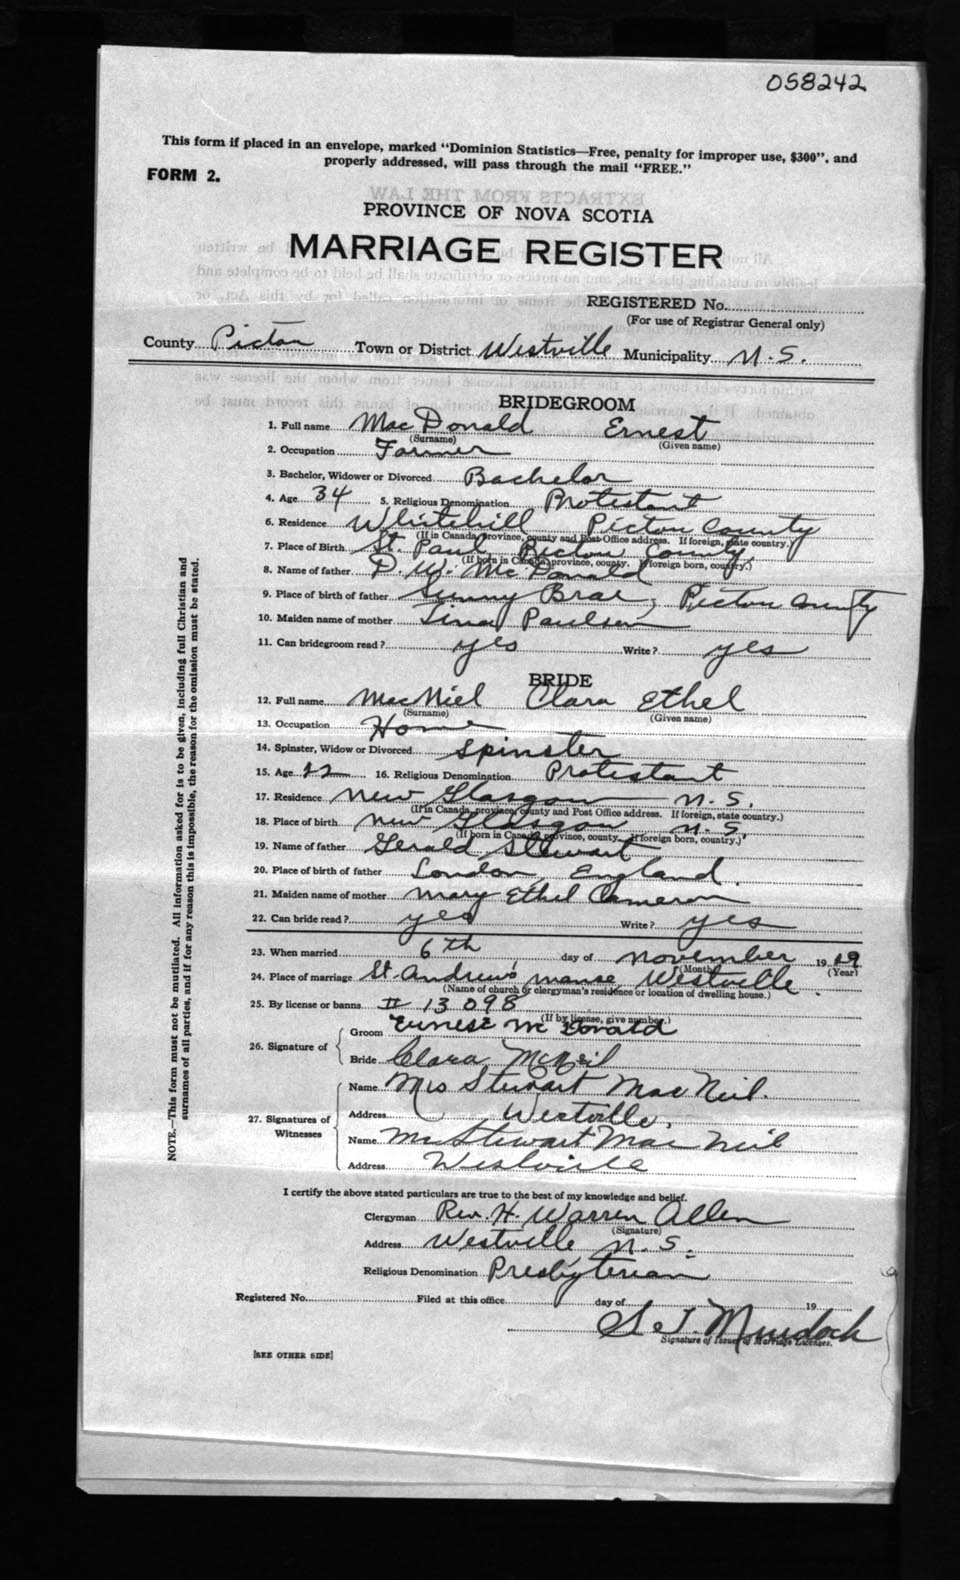 058242
This form if placed in an envelope, marked "Dominion Statistics—Free, penalty for improper use, $300", and
properly addressed, will pass through the mail "FREE."
FORM 2.
PROVINCE OF NOVA SCOTIA
MARRIAGE REGISTER
REGISTERED No.
(For use of Registrar General only)
County Pictou Town or District Westville Municipality N.S.
BRIDEGROOM
1. Full name MacDonald Ernest
(Surname) (Given name)
2. Occupation Farmer
3. Bachelor, Widower or Divorced Bachelor
4. Age 34 5. Religious Denomination Protestant
6. Residence Whitehill Pictou County
(If in Canada, province, county and Post Office address. If foreign, state country.)
7. Place of Birth St. Paul, Pictou County,
(If born in Canada, province, county. If foreign born, country.)
8. Name of father D. W. McDonald
9. Place of birth of father Sunny Brae, Pictou County
10. Maiden name of mother Tina Paulsen
11. Can bridegroom read? yes Write? yes
BRIDE
12. Full name MacNiel Clara Ethel
(Surname) (Given name)
13. Occupation Home
14. Spinster, Widow or Divorced Spinster
15. Age 22 16. Religious Denomination Protestant
17. Residence New Glasgow N.S.
(If in Canada, province, county and Post Office address. If foreign, state country.)
18. Place of birth New Glasgow N.S.
(If born in Canada, province, county. If foreign born, country.)
19. Name of father Gerald Stewart
20. Place of birth of father London, England.
21. Maiden name of mother Mary Ethel Cameron
22. Can bride read? yes Write? yes
23. When married 6th day of November 19
(Month) (Year)
24. Place of marriage St. Andrew's manse, Westville.
(Name of church or clergyman's residence or location of dwelling house.)
25. By license or banns 13098
(If by license, give number.)
26. Signature of
Groom Ernest McDonald
Bride Clara McNeil
27. Signatures of Witnesses
Name Mrs Stewart MacNeil.
Address Westville,
Name Mr Stewart MacNeil
Address Westville
I certify the above stated particulars are true to the best of my knowledge and belief.
Clergyman Rev. H. Warren Allen
(Signature)
Address Westville, N.S.
Religious Denomination Presbyterian
Registered No. Filed at this office day of 19
Murdoch
Signature of Issuer of Marriage Licenses.
[SEE OTHER SIDE]
NOTE.—This form must not be mutilated. All information asked for is to be given, including full Christian and
surnames of all parties, and if for any reason this is impossible, the reason for the omission must be stated.